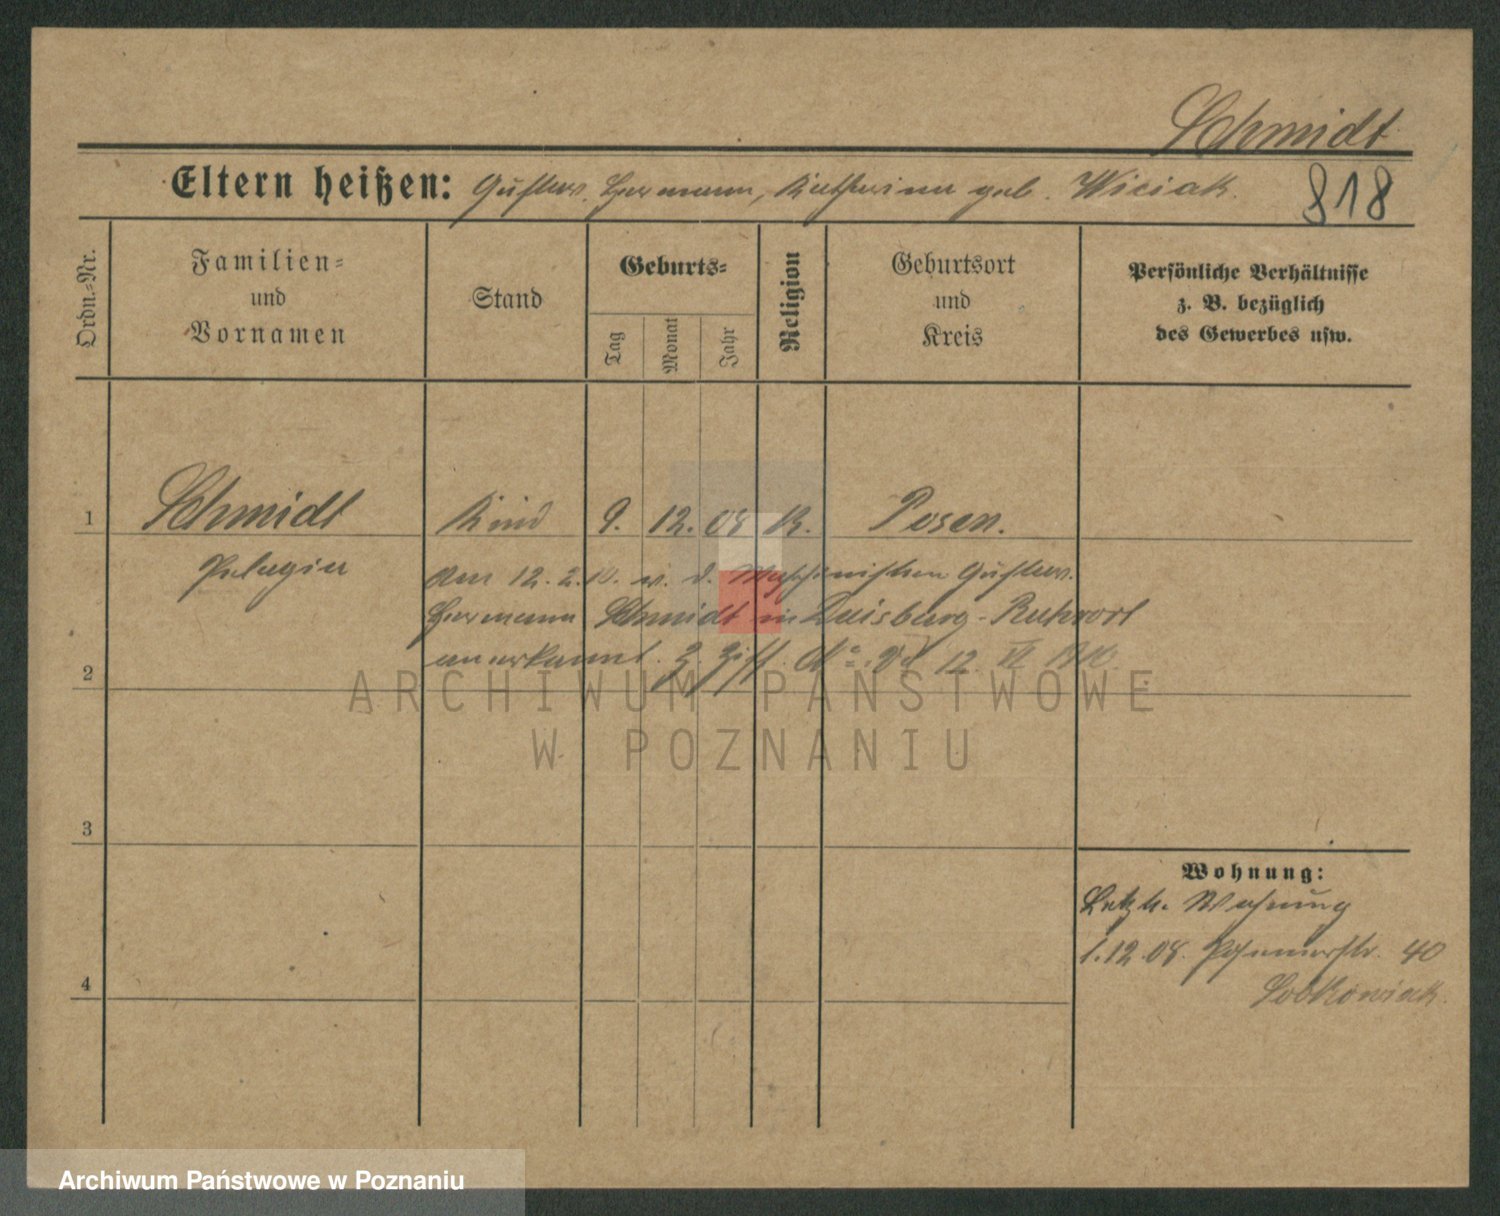 Schmidt
Eltern heißen: Gustav Hermann, Katharina geb. Wiciak.
818
Ordn.-Nr.
Familien-
und
Vornamen
Stand
Geburts-
Tag
Monat
Jahr
Religion
Geburtsort
und
Kreis
Persönliche Verhältnisse
z. B. bezüglich
des Gewerbes usw.
1
Schmidt Kind 9. 12. 08 K. Posen.
Pelagia
Am 12. 2. 10. v. d. Maschinisten Gustav
Hermann Schmidt in Duisburg-Ruhrort
anerkannt. 12. VI 1910.
2
3
4
Wohnung:
Letzte Wohnung
1.12.08. 40
ARCHIWUM PAŃSTWOWE
W POZNANIU
Archiwum Państwowe w Poznaniu